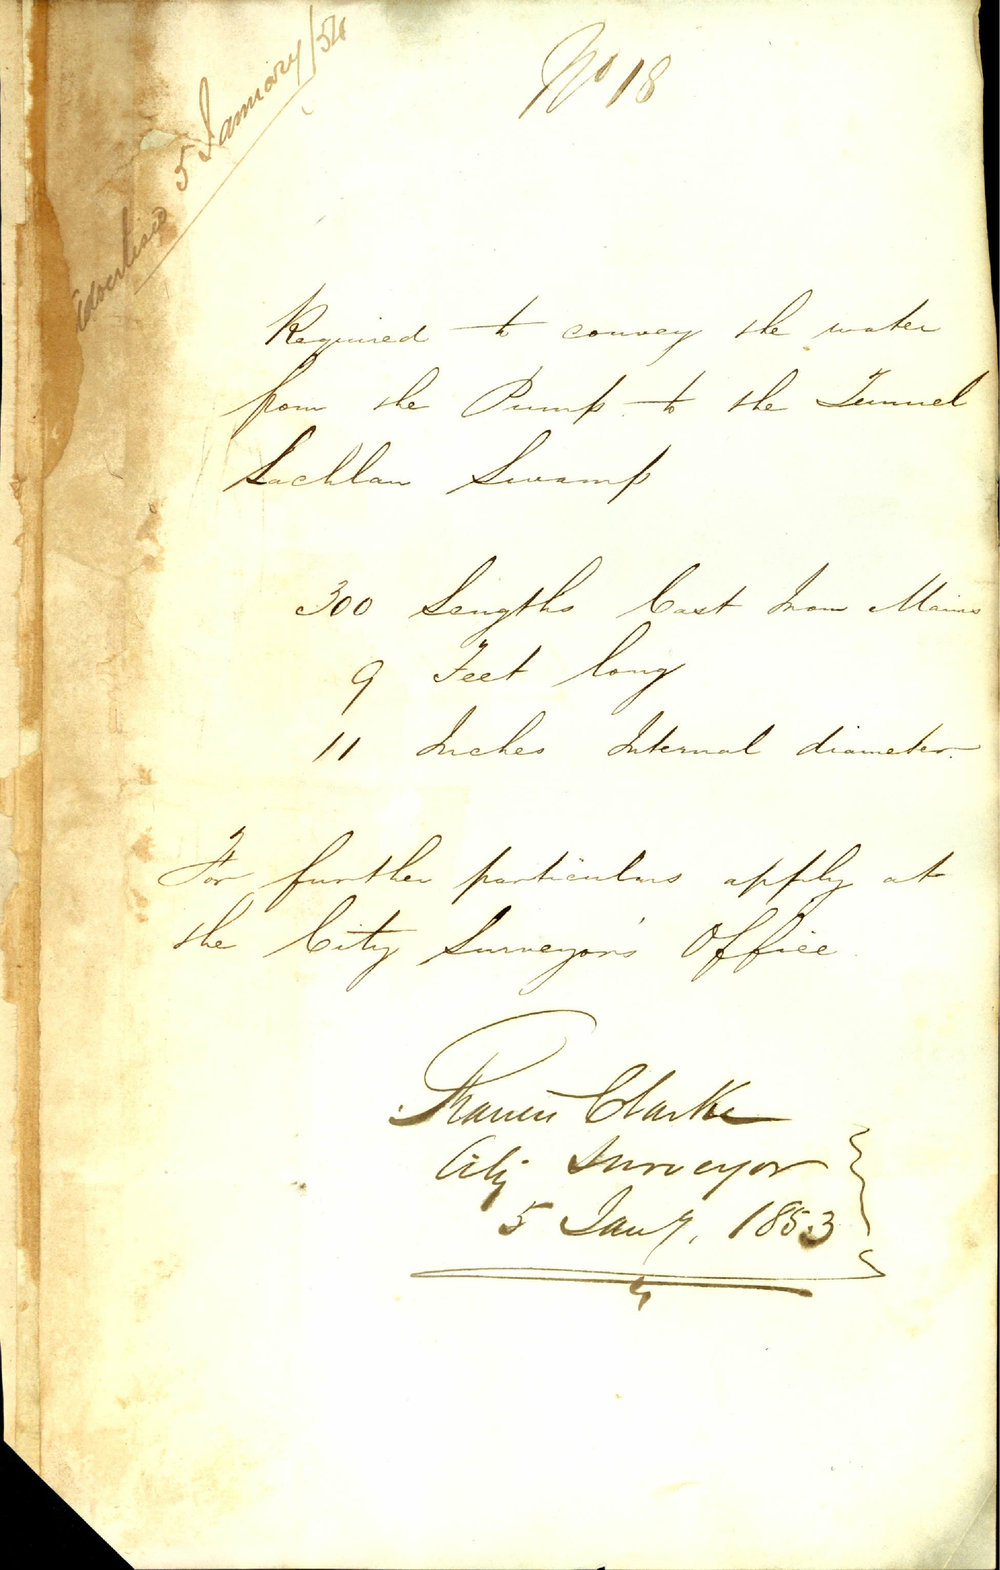 Advertised 5 January/54
No 18
Required to convey the water
from the Pump to the Tunnel
Lachlan Swamp
300 Lengths Cast Iron Mains
9 Feet long
11 Inches Internal diameter.
For further particulars apply at
the City Surveyor's Office
Clarke
City Surveyor
5 Jany. 1853